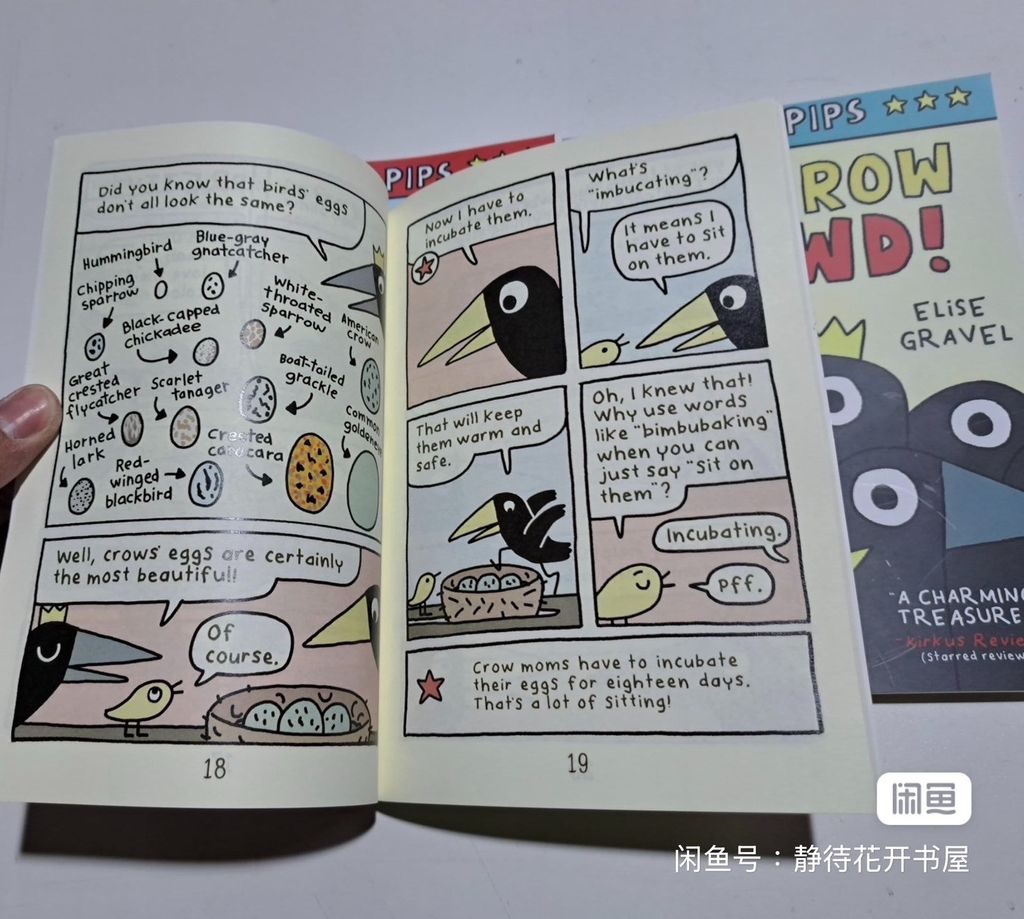 Did you know that birds' eggs
don't all look the same?
Hummingbird
Blue-gray
gnatcatcher
Chipping
sparrow
White-
throated
sparrow
Black-capped
chickadee
American
crow
Great
crested
flycatcher
Scarlet
tanager
Boat-tailed
grackle
Horned
lark
Crested
caracara
Common
goldeneye
Red-
winged
blackbird
Well, crows' eggs are certainly
the most beautiful!
Of
course.
18
Now I have to
incubate them.
What's
"imbucating"?
It means I
have to sit
on them.
That will keep
them warm and
safe.
Oh, I knew that!
Why use words
like "bimbubaking"
when you can
just say "sit on
them"?
Incubating.
Pff.
Crow moms have to incubate
their eggs for eighteen days.
That's a lot of sitting!
19
PIPS
PIPS
ROW
WD!
ELISE
GRAVEL
"A CHARMING
TREASURE
-Kirkus Revie
(Starred review
闲鱼
闲鱼号：静待花开书屋